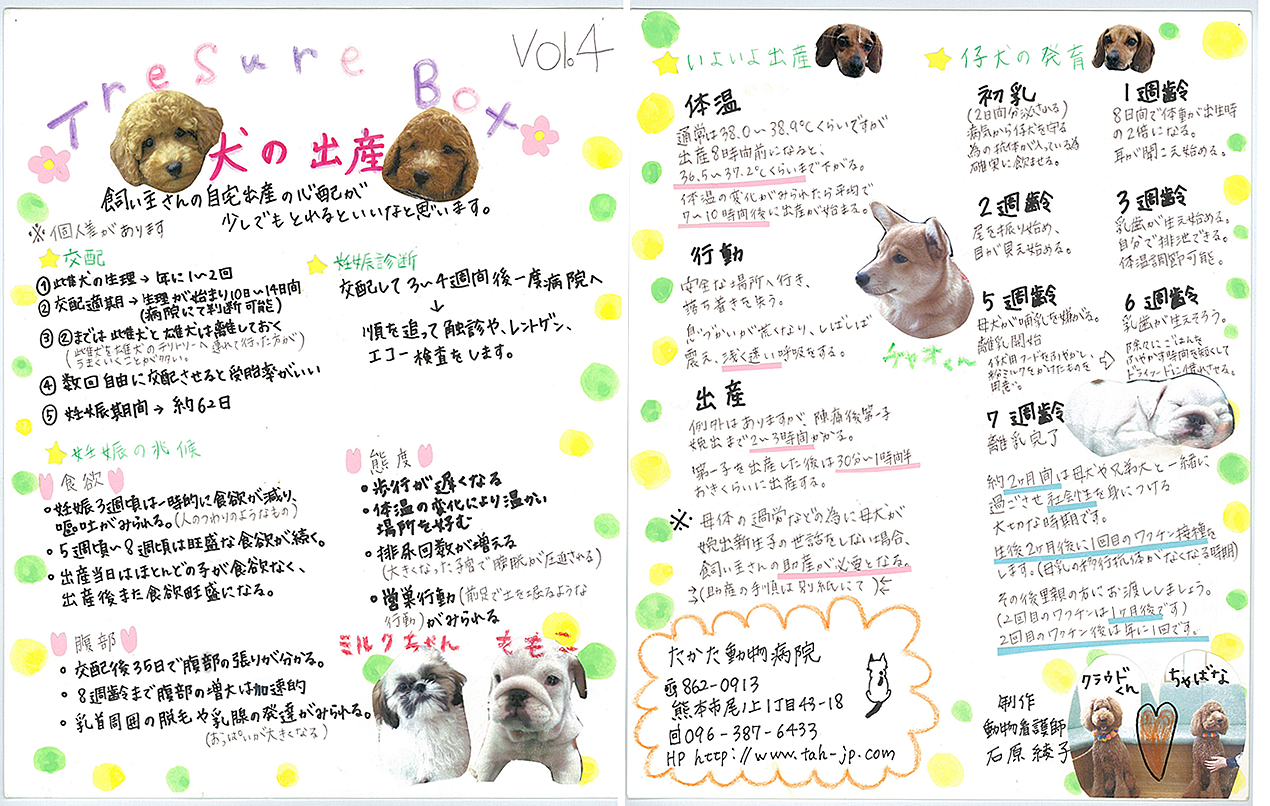 Tresure Box
Vol.4
犬の出産
飼い主さんの自宅出産の心配が
少しでもとれるといいなと思います。
※個人差があります
交配
①雌犬の生理→年に1〜2回
②交配適期→生理が始まり10日〜14日間
(病院にて判断可能)
③②までは雌犬と雄犬は離しておく
(雌犬を雄犬のテリトリーへ連れて行った方が
うまくいくことが多い。)
④数回自由に交配させると受胎率がいい
⑤妊娠期間→約62日
妊娠診断
交配して3〜4週間後一度病院へ
↓
順を追って触診や、レントゲン、
エコー検査をします。
妊娠の兆候
食欲
・妊娠3週頃は一時的に食欲が減り、
嘔吐がみられる。(人のつわりのようなもの)
・5週頃〜8週頃は旺盛な食欲が続く。
・出産当日はほとんどの子が食欲なく、
出産後また食欲旺盛になる。
腹部
・交配後35日で腹部の張りが分かる。
・8週齢まで腹部の増大は加速的
・乳首周囲の脱毛や乳腺の発達がみられる。
(おっぱいが大きくなる)
態度
・歩行が遅くなる
・体温の変化により温かい
場所を好む
・排尿回数が増える
(大きくなった子宮で膀胱が圧迫される)
・営巣行動(前足で土を堀るような
行動)がみられる
ミルクちゃん
ももこ
いよいよ出産
体温
通常は38.0〜38.9℃くらいですが
出産8時間前になると、
36.5〜37.2℃くらいまで下がる。
体温の変化がみられたら平均で
7〜10時間後に出産が始まる。
行動
安全な場所へ行き、
落ち着きを失う。
息づかいが荒くなり、しばしば
震え、浅く速い呼吸をする。
チャオくん
出産
例外はありますが、陣痛後第一子
娩出まで2〜3時間かかる。
第一子を出産した後は30分〜1時間半
おきくらいに出産する。
※母体の過労などの為に母犬が
娩出新生子の世話をしない場合、
飼い主さんの助産が必要となる。
→(助産の手順は別紙にて)←
たかた動物病院
〒862-0913
熊本市尾ノ上1丁目43-18
096-387-6433
HP http://www.tah-jp.com
仔犬の発育
初乳
(2日間分泌される)
病気から仔犬を守る
為の抗体が入っている為
確実に飲ませる。
1週齢
8日間で体重が出生時
の2倍になる。
耳が聞こえ始める。
2週齢
尾を振り始め、
目が見え始める。
3週齢
乳歯が生え始める。
自分で排泄できる。
体温調節可能。
5週齢
母犬が哺乳を嫌がる。
離乳開始
仔犬用フードをふやかし、
粉ミルクをかけたものを
用意。
⇨
6週齢
乳歯が生えそろう。
徐々にごはんを
ふやかす時間を短くして
ドライフードに慣れさせる。
7週齢
離乳完了
約2ヶ月間は母犬や兄弟犬と一緒に
過ごさせ社会性を身につける
大切な時期です。
生後2ヶ月後に1回目のワクチン接種を
します。(母乳の移行抗体がなくなる時期)
その後里親の方にお渡ししましょう。
(2回目のワクチンは1ヶ月後です)
2回目のワクチン後は年に1回です。
クラウドくん
ちゃばな
制作
動物看護師
石原 綾子